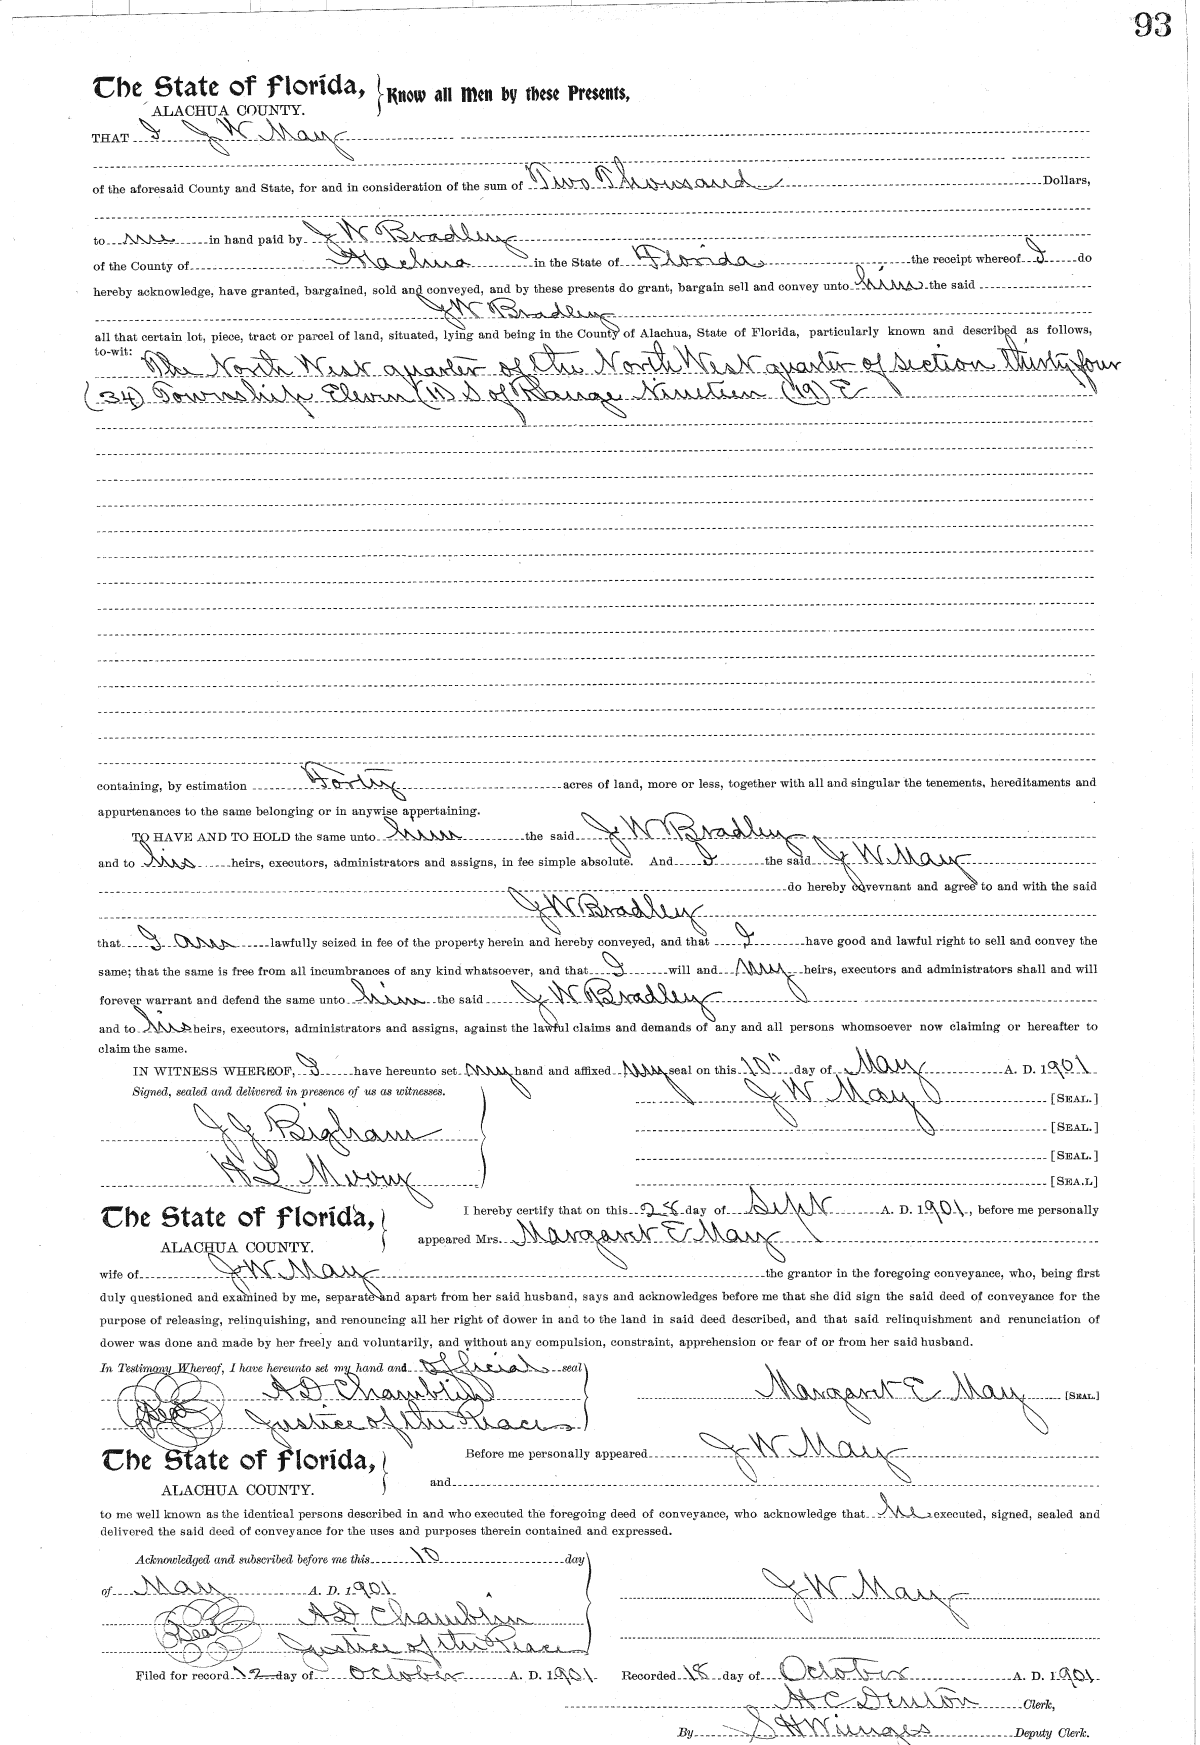 93
The State of Florida, } Know all Men by these Presents,
ALACHUA COUNTY.
THAT I J W May
of the aforesaid County and State, for and in consideration of the sum of Two Thousand Dollars,
to me in hand paid by J W Bradley
of the County of Alachua in the State of Florida the receipt whereof I do
hereby acknowledge, have granted, bargained, sold and conveyed, and by these presents do grant, bargain sell and convey unto him the said
J W Bradley
all that certain lot, piece, tract or parcel of land, situated, lying and being in the County of Alachua, State of Florida, particularly known and described as follows,
to-wit: The North West quarter of the North West quarter of section thirty four
(34) Township Eleven (11) S of Range Nineteen (19) E
containing, by estimation Forty acres of land, more or less, together with all and singular the tenements, hereditaments and
appurtenances to the same belonging or in anywise appertaining.
TO HAVE AND TO HOLD the same unto him the said J W Bradley
and to his heirs, executors, administrators and assigns, in fee simple absolute. And I the said J W May
do hereby covevnant and agree to and with the said
J W Bradley
that I am lawfully seized in fee of the property herein and hereby conveyed, and that I have good and lawful right to sell and convey the
same; that the same is free from all incumbrances of any kind whatsoever, and that I will and my heirs, executors and administrators shall and will
forever warrant and defend the same unto him the said J W Bradley
and to his heirs, executors, administrators and assigns, against the lawful claims and demands of any and all persons whomsoever now claiming or hereafter to
claim the same.
IN WITNESS WHEREOF, I have hereunto set my hand and affixed my seal on this 10" day of May A. D. 1901
Signed, sealed and delivered in presence of us as witnesses.
J W May [SEAL.]
J J Bigham [SEAL.]
[SEAL.]
H L [SEA.L]
The State of Florida, } I hereby certify that on this 28 day of Sept A. D. 1901, before me personally
ALACHUA COUNTY. appeared Mrs. Margaret E May
wife of J W May the grantor in the foregoing conveyance, who, being first
duly questioned and examined by me, separate and apart from her said husband, says and acknowledges before me that she did sign the said deed of conveyance for the
purpose of releasing, relinquishing, and renouncing all her right of dower in and to the land in said deed described, and that said relinquishment and renunciation of
dower was done and made by her freely and voluntarily, and without any compulsion, constraint, apprehension or fear of or from her said husband.
In Testimony Whereof, I have hereunto set my hand and official seal
A D Chamblin Margaret E May [SEAL.]
Seal Justice of the Peace
The State of Florida, } Before me personally appeared J W May
ALACHUA COUNTY. and
to me well known as the identical persons described in and who executed the foregoing deed of conveyance, who acknowledge that he executed, signed, sealed and
delivered the said deed of conveyance for the uses and purposes therein contained and expressed.
Acknowledged and subscribed before me this 10 day
of May A. D. 1901 J W May
A D Chamblin
Seal Justice of the Peace
Filed for record 12 day of October A. D. 1901 Recorded 18 day of October A. D. 1901
H C Denton Clerk,
By S H Wienges Deputy Clerk.